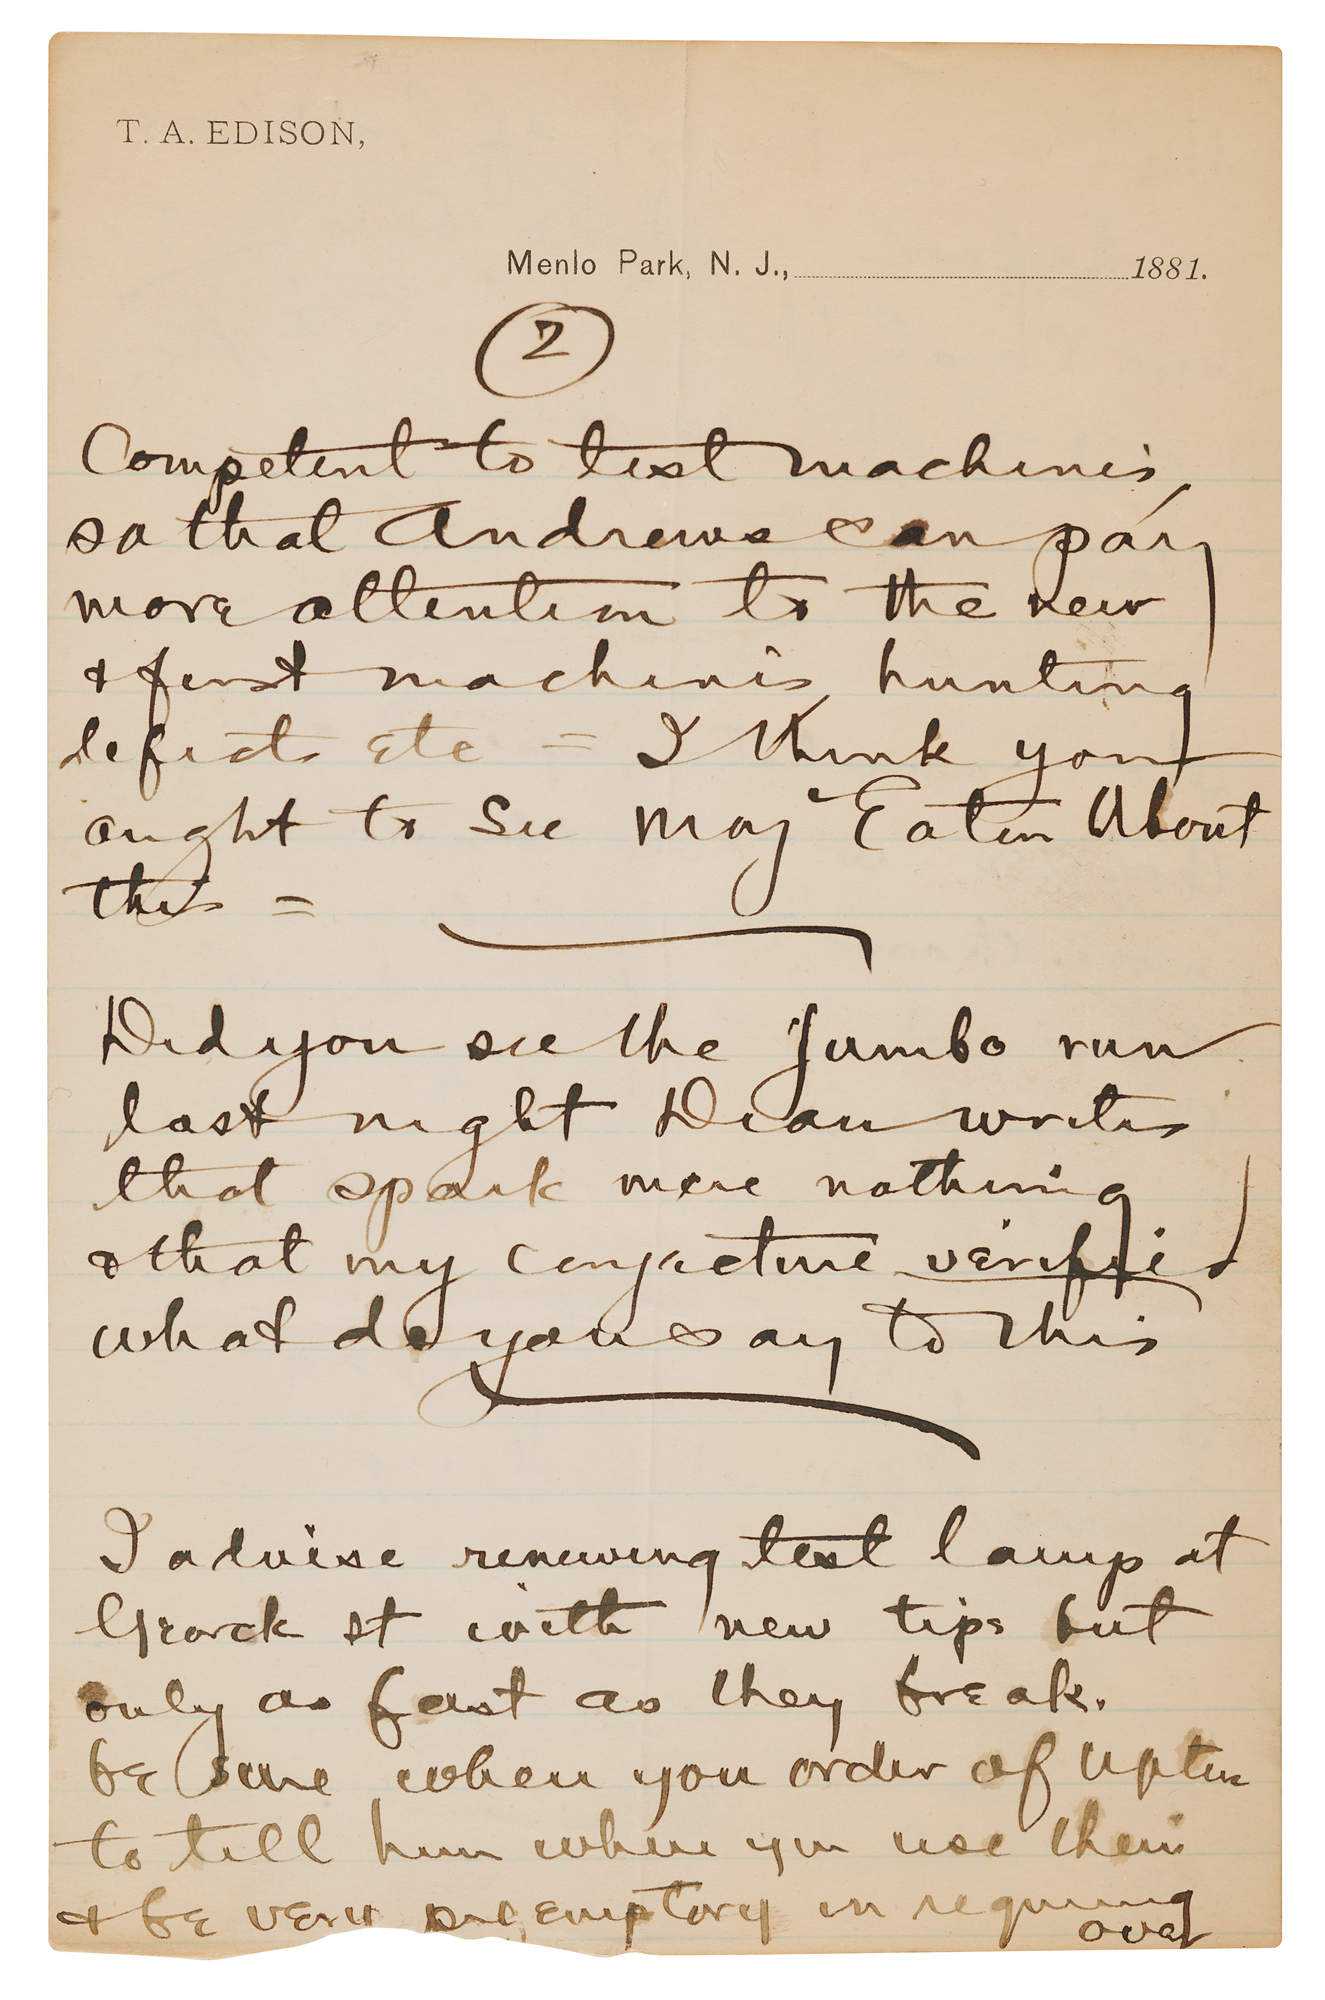 T. A. EDISON,
Menlo Park, N. J., 1881.
2
Competent to test machines,
so that Andrews can pay
more attention to the new
& first machines, hunting
defects etc = I think you
ought to see Maj Eaton About
this =
Did you see the Jumbo run
last night Dean writes
that spark mere nothing
& that my conjecture verified
what do you say to this
I advise renewing test lamp at
Goerck st with new tips but
only as fast as they break.
be sure when you order of Upton
to tell him where you use them
& be very peremptory in requiring
over